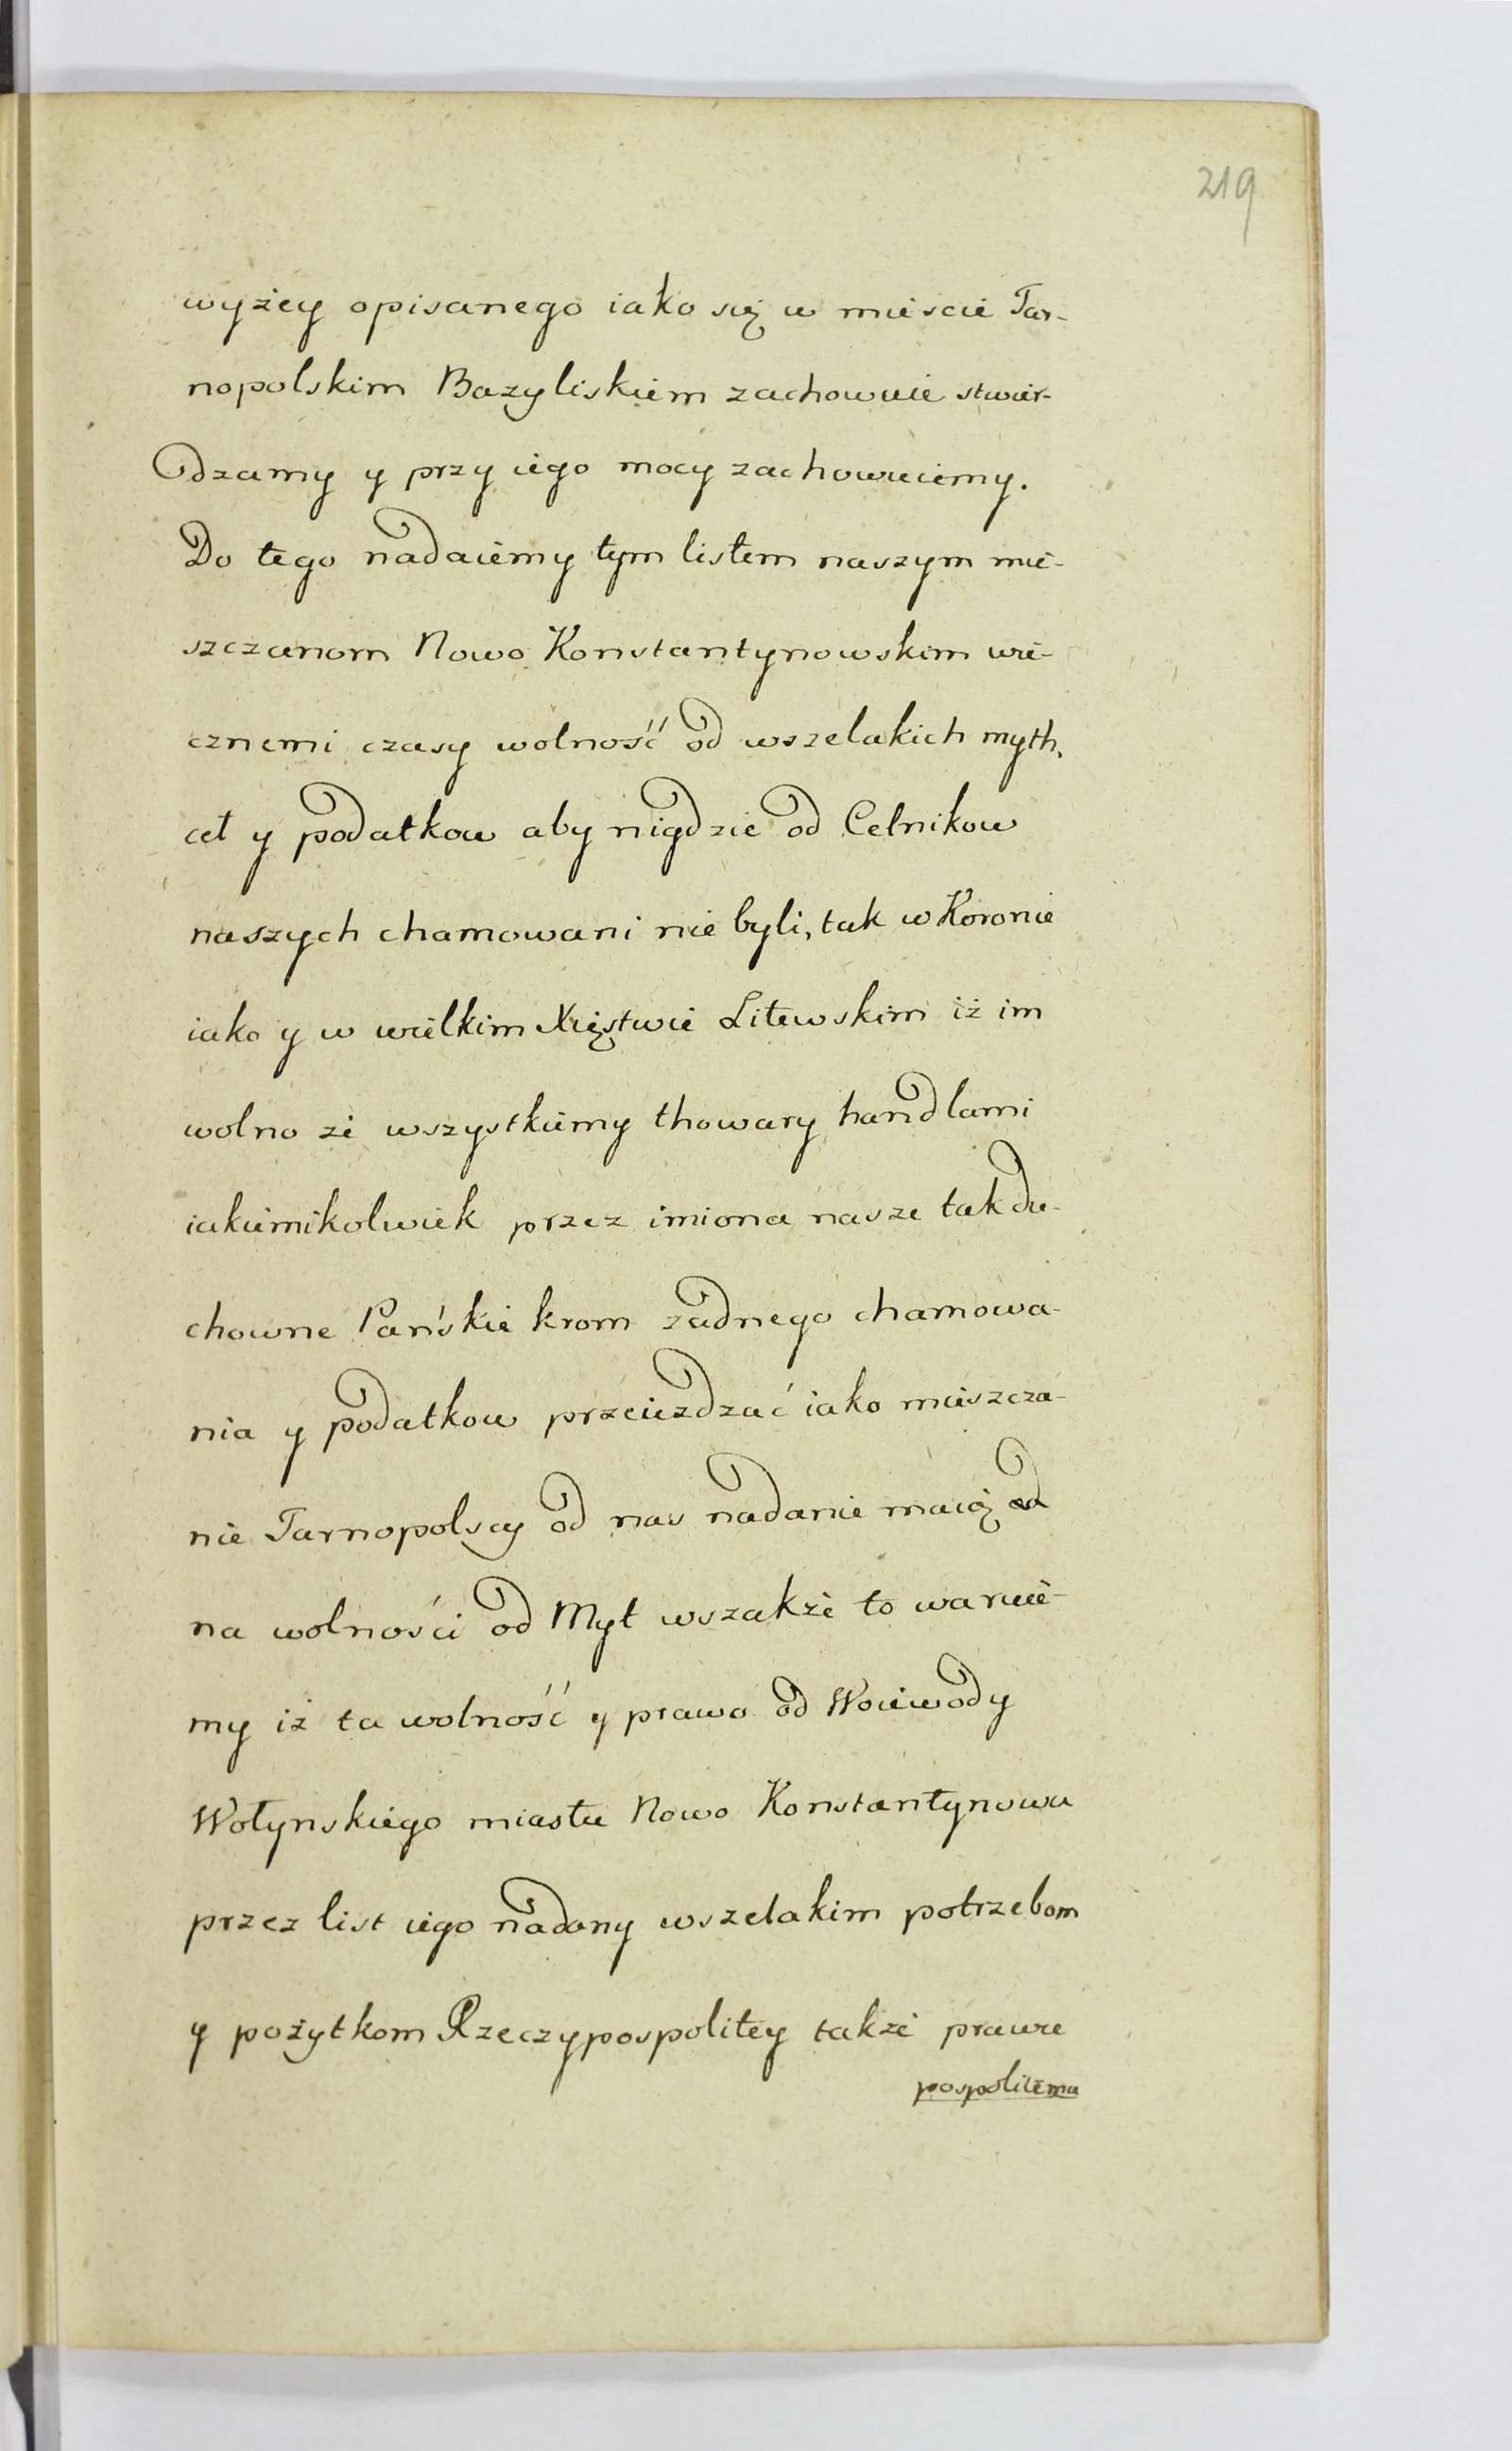 219
wyżey opisanego iako się w mieście Tar-
nopolskim Bazyliskiem zachowuie stwier-
dzamy y przy iego mocy zachowuiemy.
Do tego nadaiemy tym listem naszym mie-
szczanom Nowo Konstantynowskim wie-
cznemi czasy wolność od wszelakich myth,
ceł y podatkow aby nigdzie od Celnikow
naszych chamowani nie byli, tak w Koronie
iako y w wielkim Xięstwie Litewskim iż im
wolno ze wszystkiemy thowary handlami
iakiemikolwiek przez imiona nasze tak du-
chowne Pańskie krom zadnego chamowa-
nia y podatkow przeieżdzać iako mieszcza-
nie Tarnopolscy od nas nadanie maią od
na wolności od Myt wszakże to waruie-
my iż ta wolność y prawo od Woiewody
Wołynskiego miastu Nowo Konstantynowu
przez list iego nadany wszelakim potrzebom
y pożytkom Rzeczypospolitey także prawu
pospolitemu